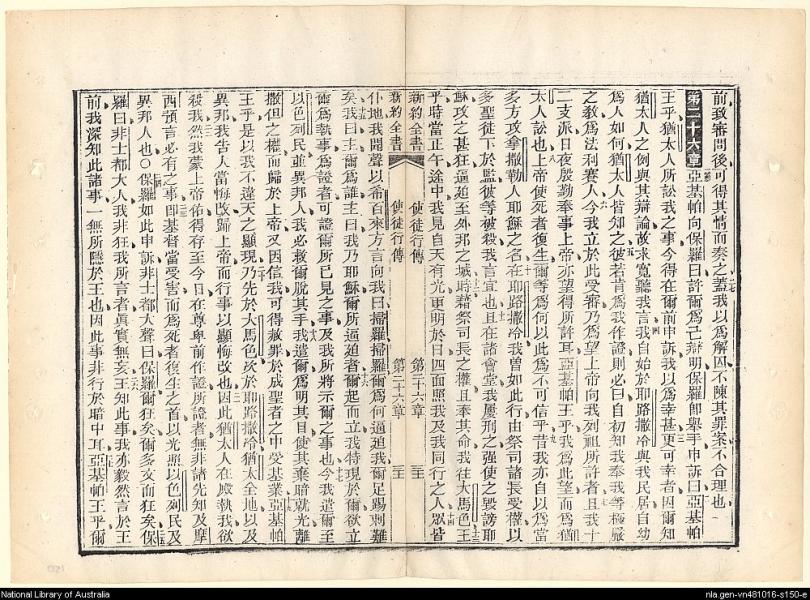 前致審問後可得其情而奏之蓋我以爲解囚不陳其罪案不合理也
第二十六章 亞基帕向保羅曰許爾爲己辯明保羅卽舉手申訴曰亞基帕
王乎猶太人所訟我之事今得在爾前申訴我以爲幸甚更可幸者因爾知
猶太人之例與其辯論故求寬聽我言我自始於耶路撒冷與我民居自幼
爲人如何猶太人皆知之彼若肯爲我作證則必曰自初知我奉我等極嚴
之敎爲法利賽人今我立於此受審乃爲望上帝向我列祖所許者且我十
二支派日夜殷勤奉事上帝亦望得所許耳亞基帕王乎我爲此望而爲猶
太人訟也上帝使死者復生爾等爲何以此爲不可信乎昔我亦自以爲當
多方攻拿撒勒人耶穌之名在耶路撒冷我曾如此行由祭司諸長受權以
多聖徒下於監彼等被殺我言宜也且在諸會堂我屢刑之强使之毀謗耶
穌攻之甚狂逼迫至外邦之城時藉祭司長之權且奉其命我往大馬色王
乎時當正午途中我見自天有光更明於日四面照我及我同行之人眾皆
新約全書 使徒行傳 第二十六章
新約全書 使徒行傳 第二十六章
仆地我聞聲以希百來方言向我曰掃羅掃羅爾爲何逼迫我爾足踢刺難
矣我曰主爾爲誰主曰我乃耶穌爾所逼迫者爾起而立我特現於爾欲立
爾爲執事爲證者可證爾所已見之事及我所將示爾之事也今我遣爾至
以色列民並異邦人我必救爾脫其手我遣爾爲明其目使其棄暗就光離
撒但之權而歸於上帝又因信我可得赦罪於成聖者之中受基業亞基帕
王乎是以我不違天之顯現乃先於大馬色次於耶路撒冷猶太全地以及
異邦我告人當悔改歸上帝而行事以顯悔改也因此猶太人在殿執我欲
殺我然我蒙上帝佑得存至今日在尊卑前作證所證者無非諸先知及摩
西預言必有之事卽基督當受害而爲死者復生之首以光照以色列民及
異邦人也○保羅如此申訴非士都大聲曰保羅爾狂矣爾多文而狂矣保
羅曰非士都大人我非狂我所言者眞實無妄王知此事我亦毅然言於王
前我深知此諸事一無所隱於王也因此事非行於暗中耳亞基帕王乎爾
National Library of Australia
nla.gen-vn481016-s150-e